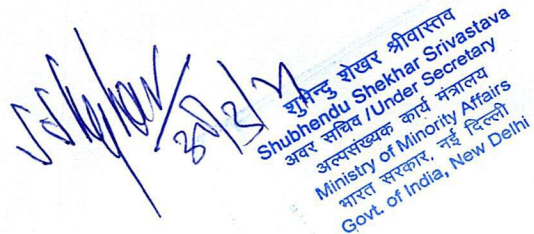 शुभेन्दु शेखर श्रीवास्तव
Shubhendu Shekhar Srivastava
अवर सचिव / Under Secretary
अल्पसंख्यक कार्य मंत्रालय
Ministry of Minority Affairs
भारत सरकार, नई दिल्ली
Govt. of India, New Delhi